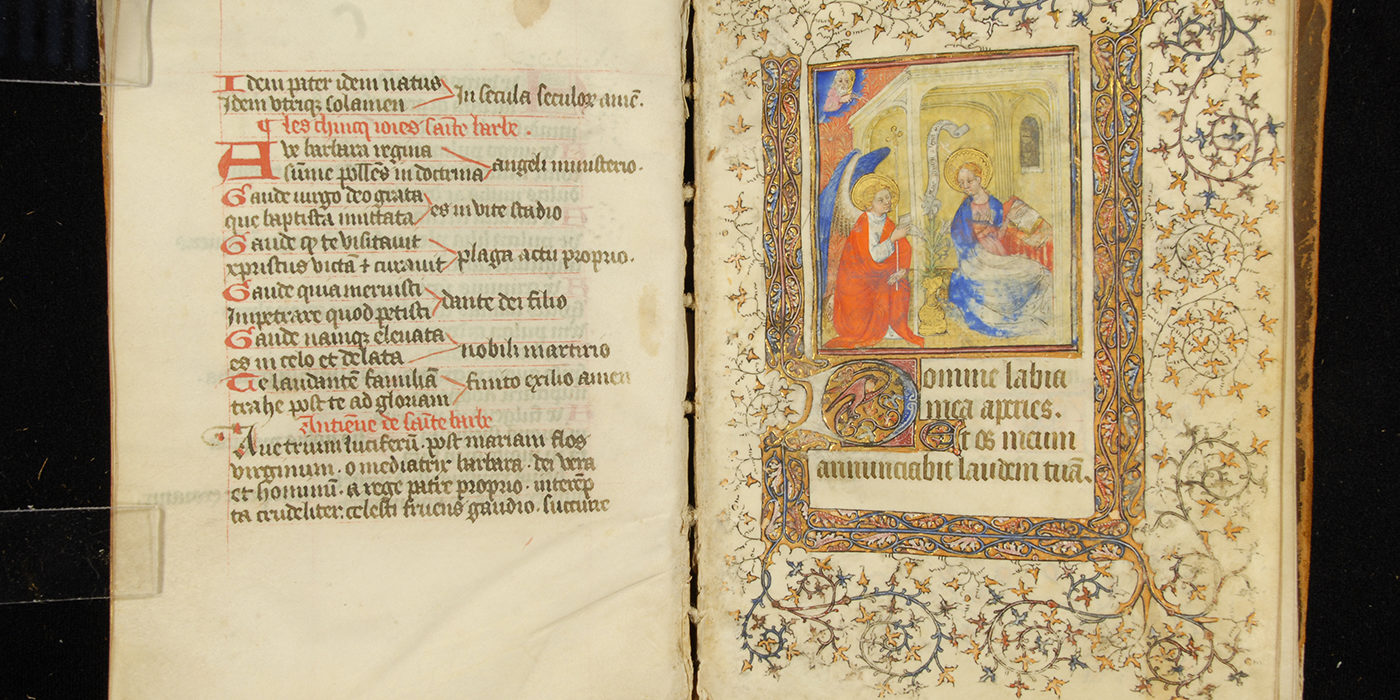 Idem pater idem natus
Idem utriqz solamen In secula seculoꝝ amē.
¶ les chincq ioies sainte barbe.
Ave barbara regina
assūme posses in doctrina angeli ministerio.
Gaude uirgo deo grata
que baptista imittata es in vite stadio
Gaude qz te visitauit
xpristus victā & curauit plaga actu proprio.
Gaude quia meruisti
Impetrare quod petisti dante dei filio
Gaude namqz eleuata
es in celo et delata nobili martirio
Te laudantē familiā finito exilio amen
trahe post te ad gloriam
Antienne de sainte barbe
Aue trium luciferū. post mariam flos
virginum. o mediatrix barbara. dei vera
et hominū. a rege patre proprio. interēp
ta crudeliter. celesti fruens gaudio. succurre
Domine labia
mea aperies.
Et os meum
annunciabit laudem tuā.